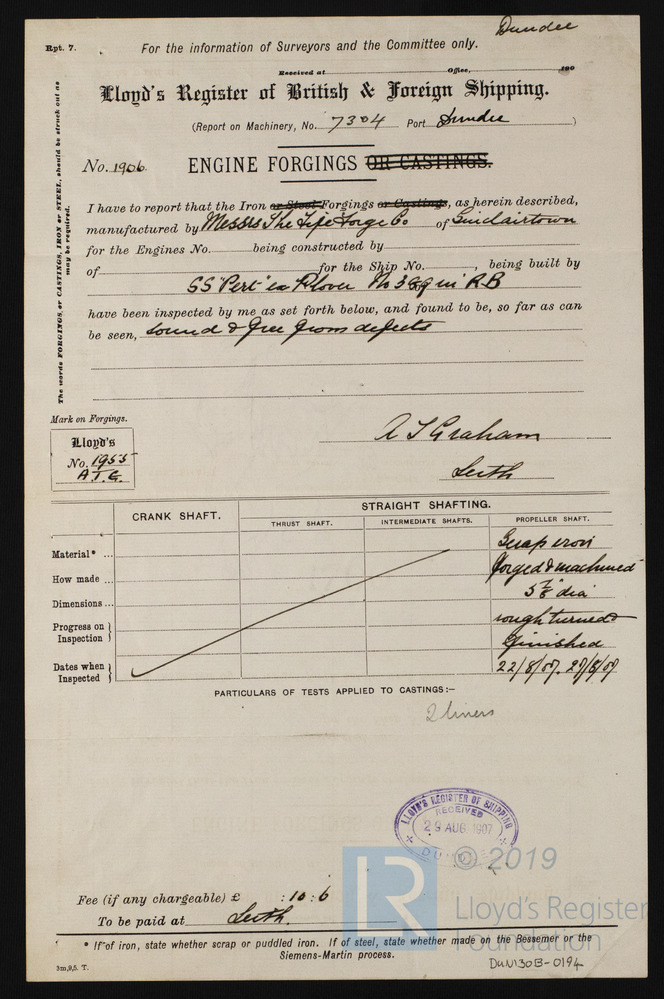 Dundee
Rpt. 7.
For the information of Surveyors and the Committee only.
Received at Office, 190
Lloyd's Register of British & Foreign Shipping.
(Report on Machinery, No. 7304 Port Dundee )
No. 1906 ENGINE FORGINGS OR CASTINGS.
The words FORGINGS, or CASTINGS, IRON or STEEL, should be struck out as may be required.
I have to report that the Iron or Steel Forgings or Castings, as herein described,
manufactured by Messrs The Fife Forge Co of Sinclairtown
for the Engines No. being constructed by
of for the Ship No. , being built by
SS "Pert" ex Plover No 389 in R.B
have been inspected by me as set forth below, and found to be, so far as can
be seen, sound & free from defects
Mark on Forgings.
Lloyd's
No. 1955
A.T.G.
A T Graham
Leith
CRANK SHAFT. STRAIGHT SHAFTING.
THRUST SHAFT. INTERMEDIATE SHAFTS. PROPELLER SHAFT.
Material* ... Scrap iron
How made ... forged & machined
Dimensions ... 5 7/8" dia
Progress on Inspection rough turned & finished
Dates when Inspected 22/8/07. 27/8/07
PARTICULARS OF TESTS APPLIED TO CASTINGS:—
2 liners
LLOYD'S REGISTER OF SHIPPING
RECEIVED
29 AUG 1907
DUNDEE
© 2019
LR
Lloyd's Register
Foundation
Fee (if any chargeable) £ : 10 : 6
To be paid at Leith.
* If of iron, state whether scrap or puddled iron. If of steel, state whether made on the Bessemer or the
Siemens-Martin process.
3m,9,5. T.
DUN130B-0194